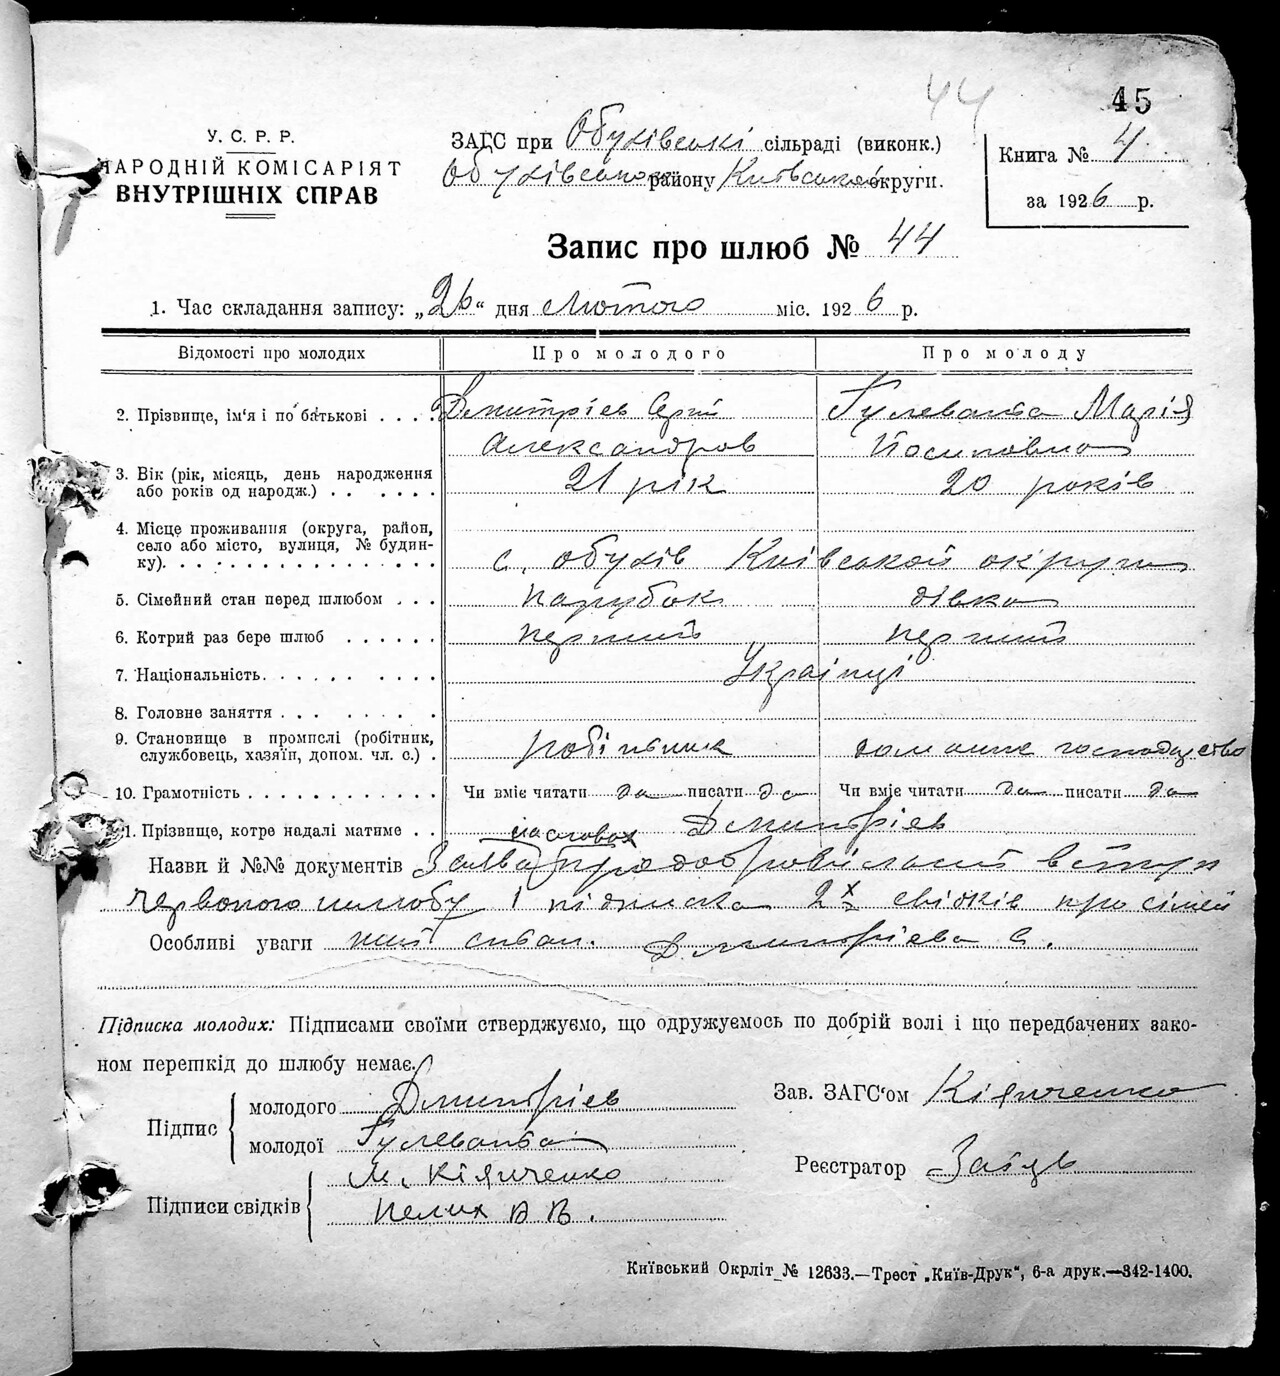 44
45
У. С. Р. Р.
НАРОДНІЙ КОМІСАРІЯТ
ВНУТРІШНІХ СПРАВ
ЗАГС при Обухівські сільраді (виконк.)
Обухівського району Київської округи.
Книга № 4
за 1926 р.
Запис про шлюб № 44
1. Час складання запису: „26“ дня Лютого міс. 1926 р.
Відомості про молодих Про молодого Про молоду
2. Прізвище, ім'я і по батькові . . . . Дмитрієв Сергій Гулевата Марія
Александров Йосиповна
3. Вік (рік, місяць, день народження
або років од народж.) . . . . . . 21 рік 20 років
4. Місце проживання (округа, район,
село або місто, вулиця, № будин-
ку). . . . . . . . . . . . . . . с. Обухів Київської округи
5. Сімейний стан перед шлюбом . . . парубок дівка
6. Котрий раз бере шлюб . . . . . . перший перший
7. Національність. . . . . . . . . . Українці
8. Головне заняття . . . . . . . .
9. Становище в промислі (робітник,
службовець, хазяїн, допом. чл. с.) . робітник домашне господарство
10. Грамотність . . . . . . . . . . . . Чи вміє читати да писати да Чи вміє читати да писати да
11. Прізвище, котре надалі матиме . . Дмитрієв
Назви й №№ документів Заява про добровільний вступ
червоного шлюбу і підписка 2х свідків про сімей
Особливі уваги ний стан. Дмитрієва С.
Підписка молодих: Підписами своїми стверджуємо, що одружуємось по добрій волі і що передбачених зако-
ном перешкід до шлюбу немає.
Підпис молодого Дмитрієв
молодої Гулевата
Підписи свідків М. Кіяниченко
Пелих А В.
Зав. ЗАГС'ом Кіяниченко
Реєстратор Заїць
Київський Окрліт № 12633.—Трест „Київ-Друк“, 6-а друк.—342-1400.